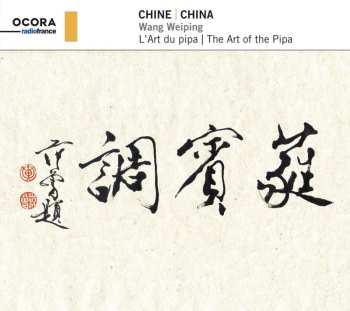 OCORA
radiofrance
CHINE | CHINA
Wang Weiping
L'Art du pipa | The Art of the Pipa
蕤賓調
范曾題